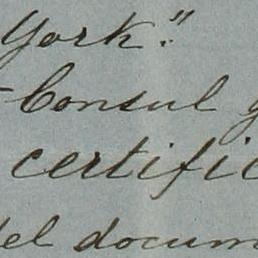 York."
-Consul g
certific
del docum